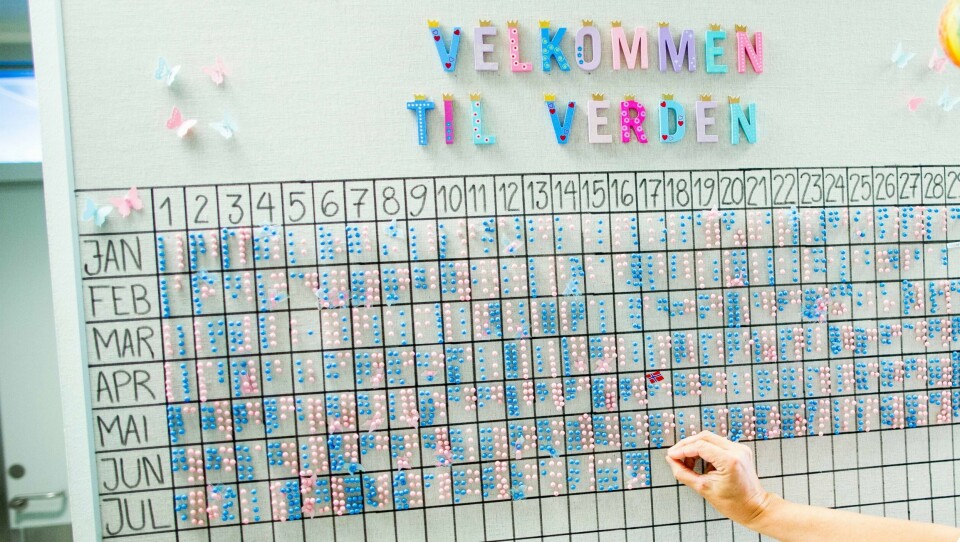 VELKOMMEN
TIL VERDEN
1 2 3 4 5 6 7 8 9 10 11 12 13 14 15 16 17 18 19 20 21 22 23 24 25 26 27 28 29
JAN
FEB
MAR
APR
MAI
JUN
JUL